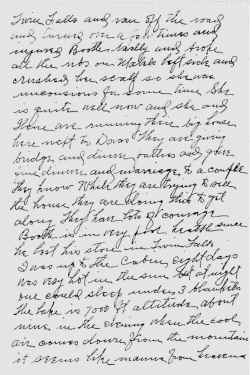 Twin Falls and ran off the road
and turned over a few times and
injured Booth badly and broke
all the ribs on left side and
crushed her scalf so she was
unconsious for some time. She
is quite well now and she and
are running their big house
here next to Dows They are giving
bridge and dinner parties and gave
one dinner and marriage to a couple
They know While they are trying to sell
the house they are doing this to get
along They have lots of courage
Booth is in very poor health since
he lost his store in Twin Falls.
I was up to the Cabin eight days
was very hot in the sun but at night
one could sleep under 3 blankets
The lake is 7000 ft altitude about
nine in the evening when the cool
air comes down from the mountains
it seems like manna from heavens